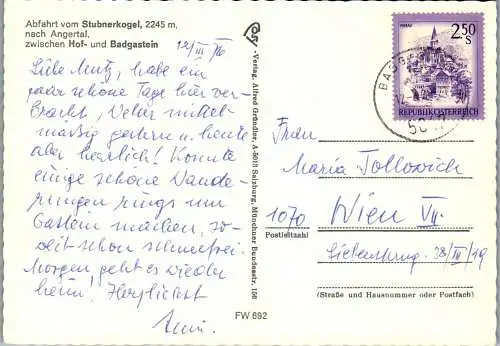 Abfahrt vom Stubnerkogel, 2245 m,
nach Angertal,
zwischen Hof- und Badgastein
12/III/76
Liebe Mutz, habe ein
paar schöne Tage hier ver-
bracht, Wetter mittel-
mässig gestern u. heute
aber herrlich! Konnte
einige schöne Wande-
rungen rings um
Gastein machen, so-
weit schon schneefrei.
Morgen geht es wieder
heim! Herzlichst
Verlag Alfred Gründler, A-5013 Salzburg, Münchner Bundesstr. 156
2.50
S
REPUBLIK ÖSTERREICH
BADG
Frau
Maria
1070 Wien VII.
Postleitzahl
28/III/19
(Straße und Hausnummer oder Postfach)
FW 692